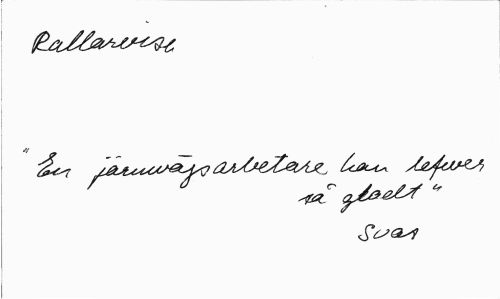 Rallarvisa
"En järnvägsarbetare han lefwer
så gladt"
Svas